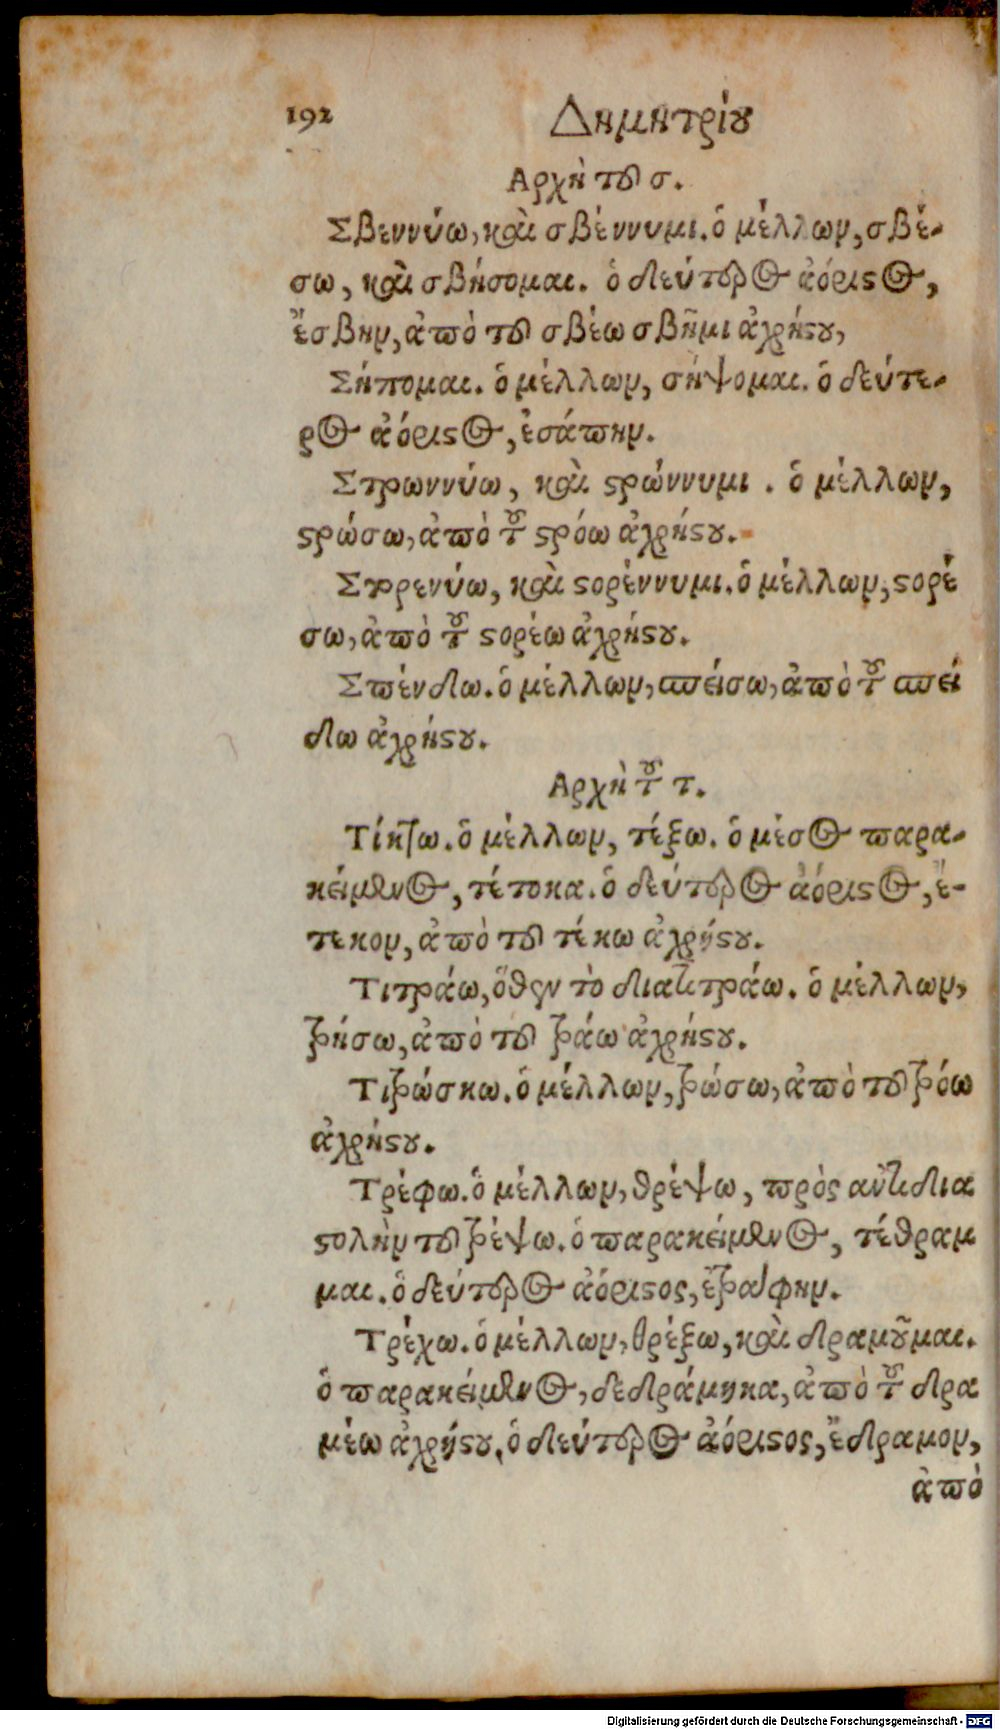 192 Δημητρίου
Αρχὴ τοῦ σ.
Σβεννύω, καὶ σβέννυμι. ὁ μέλλων, σβέ-
σω, καὶ σβήσομαι. ὁ δεύτερος ἀόριστος,
ἔσβην, ἀπὸ τοῦ σβέω σβῆμι ἀχρήστου,
Σήπομαι. ὁ μέλλων, σήψομαι. ὁ δεύτε-
ρος ἀόριστος, ἐσάπην.
Στρωννύω, καὶ στρώννυμι. ὁ μέλλων,
στρώσω, ἀπὸ τοῦ στρόω ἀχρήστου.
Στορενύω, καὶ στορέννυμι. ὁ μέλλων, στορέ
σω, ἀπὸ τοῦ στορέω ἀχρήστου.
Σπένδω. ὁ μέλλων, σπείσω, ἀπὸ τοῦ σπεί
δω ἀχρήστου.
Αρχὴ τοῦ τ.
Τίκτω. ὁ μέλλων, τέξω. ὁ μέσος παρα-
κείμενος, τέτοκα. ὁ δεύτερος ἀόριστος, ἔ-
τεκον, ἀπὸ τοῦ τέκω ἀχρήστου.
Τιτράω, ὅθεν τὸ διατιτράω. ὁ μέλλων,
τρήσω, ἀπὸ τοῦ τράω ἀχρήστου.
Τιτρώσκω. ὁ μέλλων, τρώσω, ἀπὸ τοῦ τρόω
ἀχρήστου.
Τρέφω. ὁ μέλλων, θρέψω, πρὸς ἀντιδια
στολὴν τοῦ τρέψω. ὁ παρακείμενος, τέθραμ
μαι. ὁ δεύτερος ἀόριστος, ἐτράφην.
Τρέχω. ὁ μέλλων, θρέξω, καὶ δραμοῦμαι.
ὁ παρακείμενος, δεδράμηκα, ἀπὸ τοῦ δρα
μέω ἀχρήστου. ὁ δεύτερος ἀόριστος, ἔδραμον,
ἀπὸ
Digitalisierung gefördert durch die Deutsche Forschungsgemeinschaft - DFG